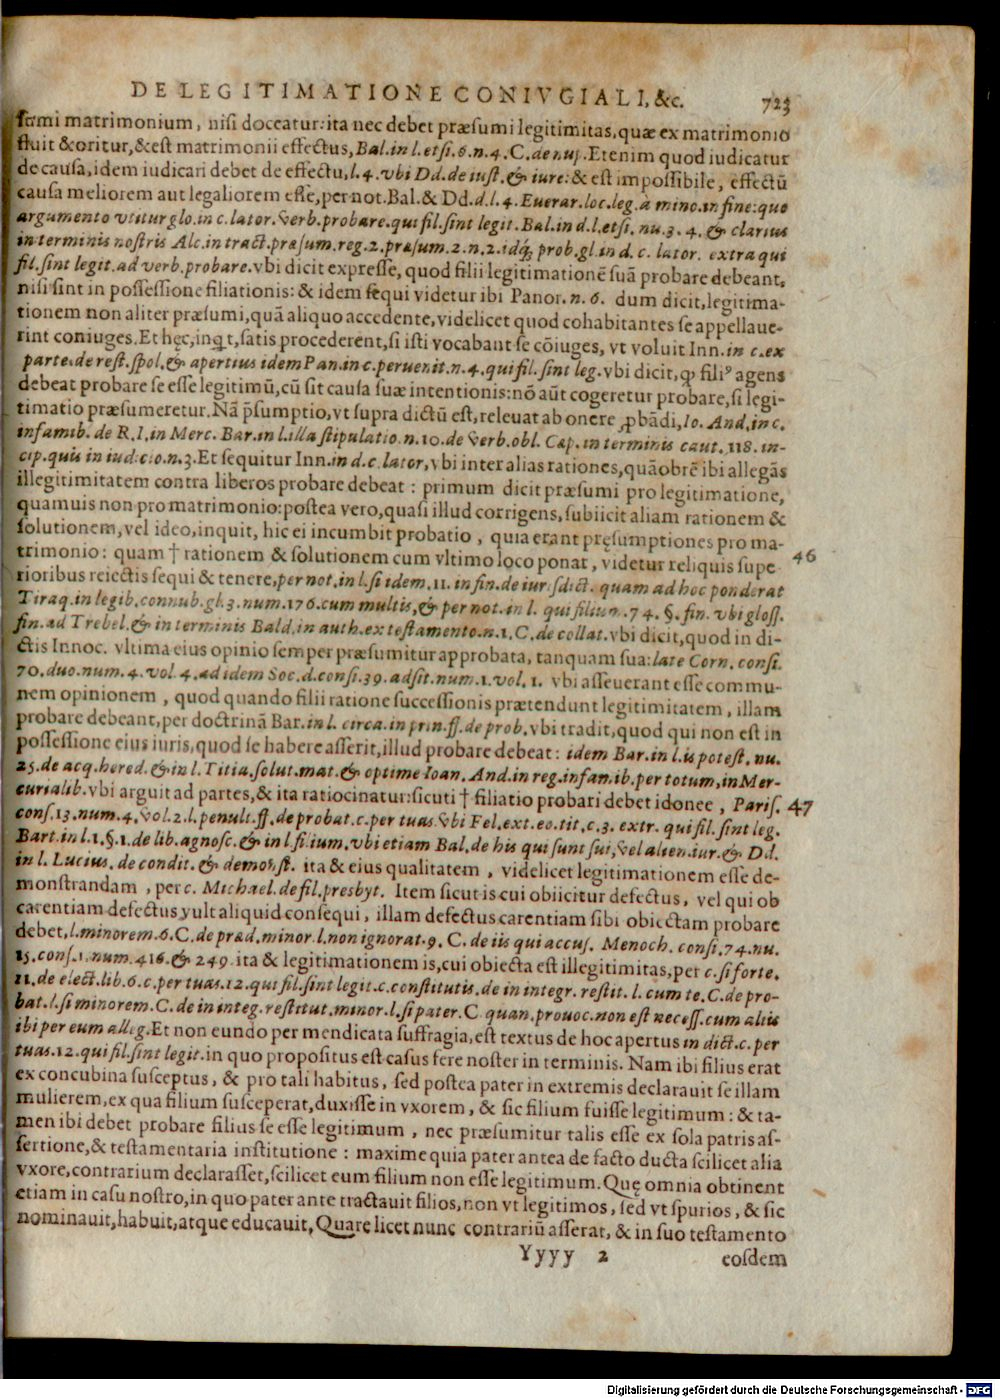 DE LEGITIMATIONE CONIVGIALI, &c. 723
sumi matrimonium, nisi doceatur: ita nec debet præsumi legitimitas, quæ ex matrimonio
fluit & oritur, & est matrimonii effectus, Bal. in l. etsi. 6. n. 4. C. de nup. Etenim quod iudicatur
de causa, idem iudicari debet de effectu, l. 4. vbi Dd. de iust. & iure: & est impossibile, effectū
causa meliorem aut legaliorem esse, per not. Bal. & Dd. d. l. 4. Euerar. loc. leg. a mino. in fine: quo
argumento vtitur glo. in c. lator. verb. probare. qui fil. sint legit. Bal. in d. l. etsi. nu. 3. 4. & clarius
in terminis nostris Alc. in tract. præsum. reg. 2. præsum. 2. n. 2. idq; prob. gl. in d. c. lator. extra qui
fil. sint legit. ad verb. probare. vbi dicit expresse, quod filii legitimationē suā probare debeant,
nisi sint in possessione filiationis: & idem sequi videtur ibi Panor. n. 6. dum dicit, legitima-
tionem non aliter præsumi, quā aliquo accedente, videlicet quod cohabitantes se appellaue-
rint coniuges. Et hęc, inquit, satis procederent, si isti vocabant se cōiuges, vt voluit Inn. in c. ex
parte. de rest. spol. & apertius idem Pan. in c. peruenit. n. 4. qui fil. sint leg. vbi dicit, ꝙ filiꝰ agens
debeat probare se esse legitimū, cū sit causa suæ intentionis: nō aūt cogeretur probare, si legi-
timatio præsumeretur. Nā p̄sumptio, vt supra dictū est, releuat ab onere ꝓbādi, Io. And. in c.
infamib. de R. I. in Merc. Bar. in l. illa stipulatio. n. 10. de verb. obl. Cap. in terminis caut. 118. in-
cip. quis in iudicio. n. 3. Et sequitur Inn. in d. c. lator, vbi inter alias rationes, quāobrē ibi allegās
illegitimitatem contra liberos probare debeat: primum dicit præsumi pro legitimatione,
quamuis non pro matrimonio: postea vero, quasi illud corrigens, subiicit aliam rationem &
solutionem, vel ideo, inquit, hic ei incumbit probatio, quia erant pręsumptiones pro ma-
trimonio: quam † rationem & solutionem cum vltimo loco ponat, videtur reliquis supe 46
rioribus reiectis sequi & tenere, per not. in l. si idem. 11. in fin. de iurisdict. quam ad hoc ponderat
Tiraq. in legib. connub. gl. 3. num. 176. cum multis, & per not. in l. qui filium. 74. §. fin. vbi gloss.
fin. ad Trebel. & in terminis Bald. in auth. ex testamento. n. 1. C. de collat. vbi dicit, quod in di-
ctis Innoc. vltima eius opinio semper præsumitur approbata, tanquam sua: late Corn. consi.
70. duo. num. 4. vol. 4. ad idem Soc. d. consi. 39. adsit. num. 1. vol. 1. vbi asseuerant esse commu-
nem opinionem, quod quando filii ratione successionis prætendunt legitimitatem, illam
probare debeant, per doctrinā Bar. in l. circa. in prin. ff. de prob. vbi tradit, quod qui non est in
possessione eius iuris, quod se habere asserit, illud probare debeat: idem Bar. in l. is potest. nu.
25. de acq. hered. & in l. Titia. solut. mat. & optime Ioan. And. in reg. infamib. per totum, in Mer-
curialib. vbi arguit ad partes, & ita ratiocinatur: sicuti † filiatio probari debet idonee, Paris. 47
cons. 13. num. 4. vol. 2. l. penult. ff. de probat. c. per tuas. vbi Fel. ext. eo. tit. c. 3. extr. qui fil. sint leg.
Bart. in l. 1. §. 1. de lib. agnosc. & in l. filium. vbi etiam Bal. de his qui sunt sui, vel alien. iur. & Dd.
in l. Lucius. de condit. & demonst. ita & eius qualitatem, videlicet legitimationem esse de-
monstrandam, per c. Michael. de fil. presbyt. Item sicut is cui obiicitur defectus, vel qui ob
carentiam defectus vult aliquid consequi, illam defectus carentiam sibi obiectam probare
debet, l. minorem. 6. C. de præd. minor. l. non ignorat. 9. C. de iis qui accus. Menoch. consi. 74. nu.
15. cons. 1. num. 416. & 249. ita & legitimationem is, cui obiecta est illegitimitas, per c. si forte.
11. de elect. lib. 6. c. per tuas. 12. qui fil. sint legit. c. constitutis. de in integr. restit. l. cum te. C. de pro-
bat. l. si minorem. C. de in integ. restitut. minor. l. si pater. C. quan. prouoc. non est necess. cum aliis
ibi per eum alleg. Et non eundo per mendicata suffragia, est textus de hoc apertus in dict. c. per
tuas. 12. qui fil. sint legit. in quo propositus est casus fere noster in terminis. Nam ibi filius erat
ex concubina susceptus, & pro tali habitus, sed postea pater in extremis declarauit se illam
mulierem, ex qua filium susceperat, duxisse in vxorem, & sic filium fuisse legitimum: & ta-
men ibi debet probare filius se esse legitimum, nec præsumitur talis esse ex sola patris as-
sertione, & testamentaria institutione: maxime quia pater antea de facto ducta scilicet alia
vxore, contrarium declarasset, scilicet eum filium non esse legitimum. Quę omnia obtinent
etiam in casu nostro, in quo pater ante tractauit filios, non vt legitimos, sed vt spurios, & sic
nominauit, habuit, atque educauit, Quare licet nunc contrariū asserat, & in suo testamento
Yyyy 2 eosdem
Digitalisierung gefördert durch die Deutsche Forschungsgemeinschaft - DFG